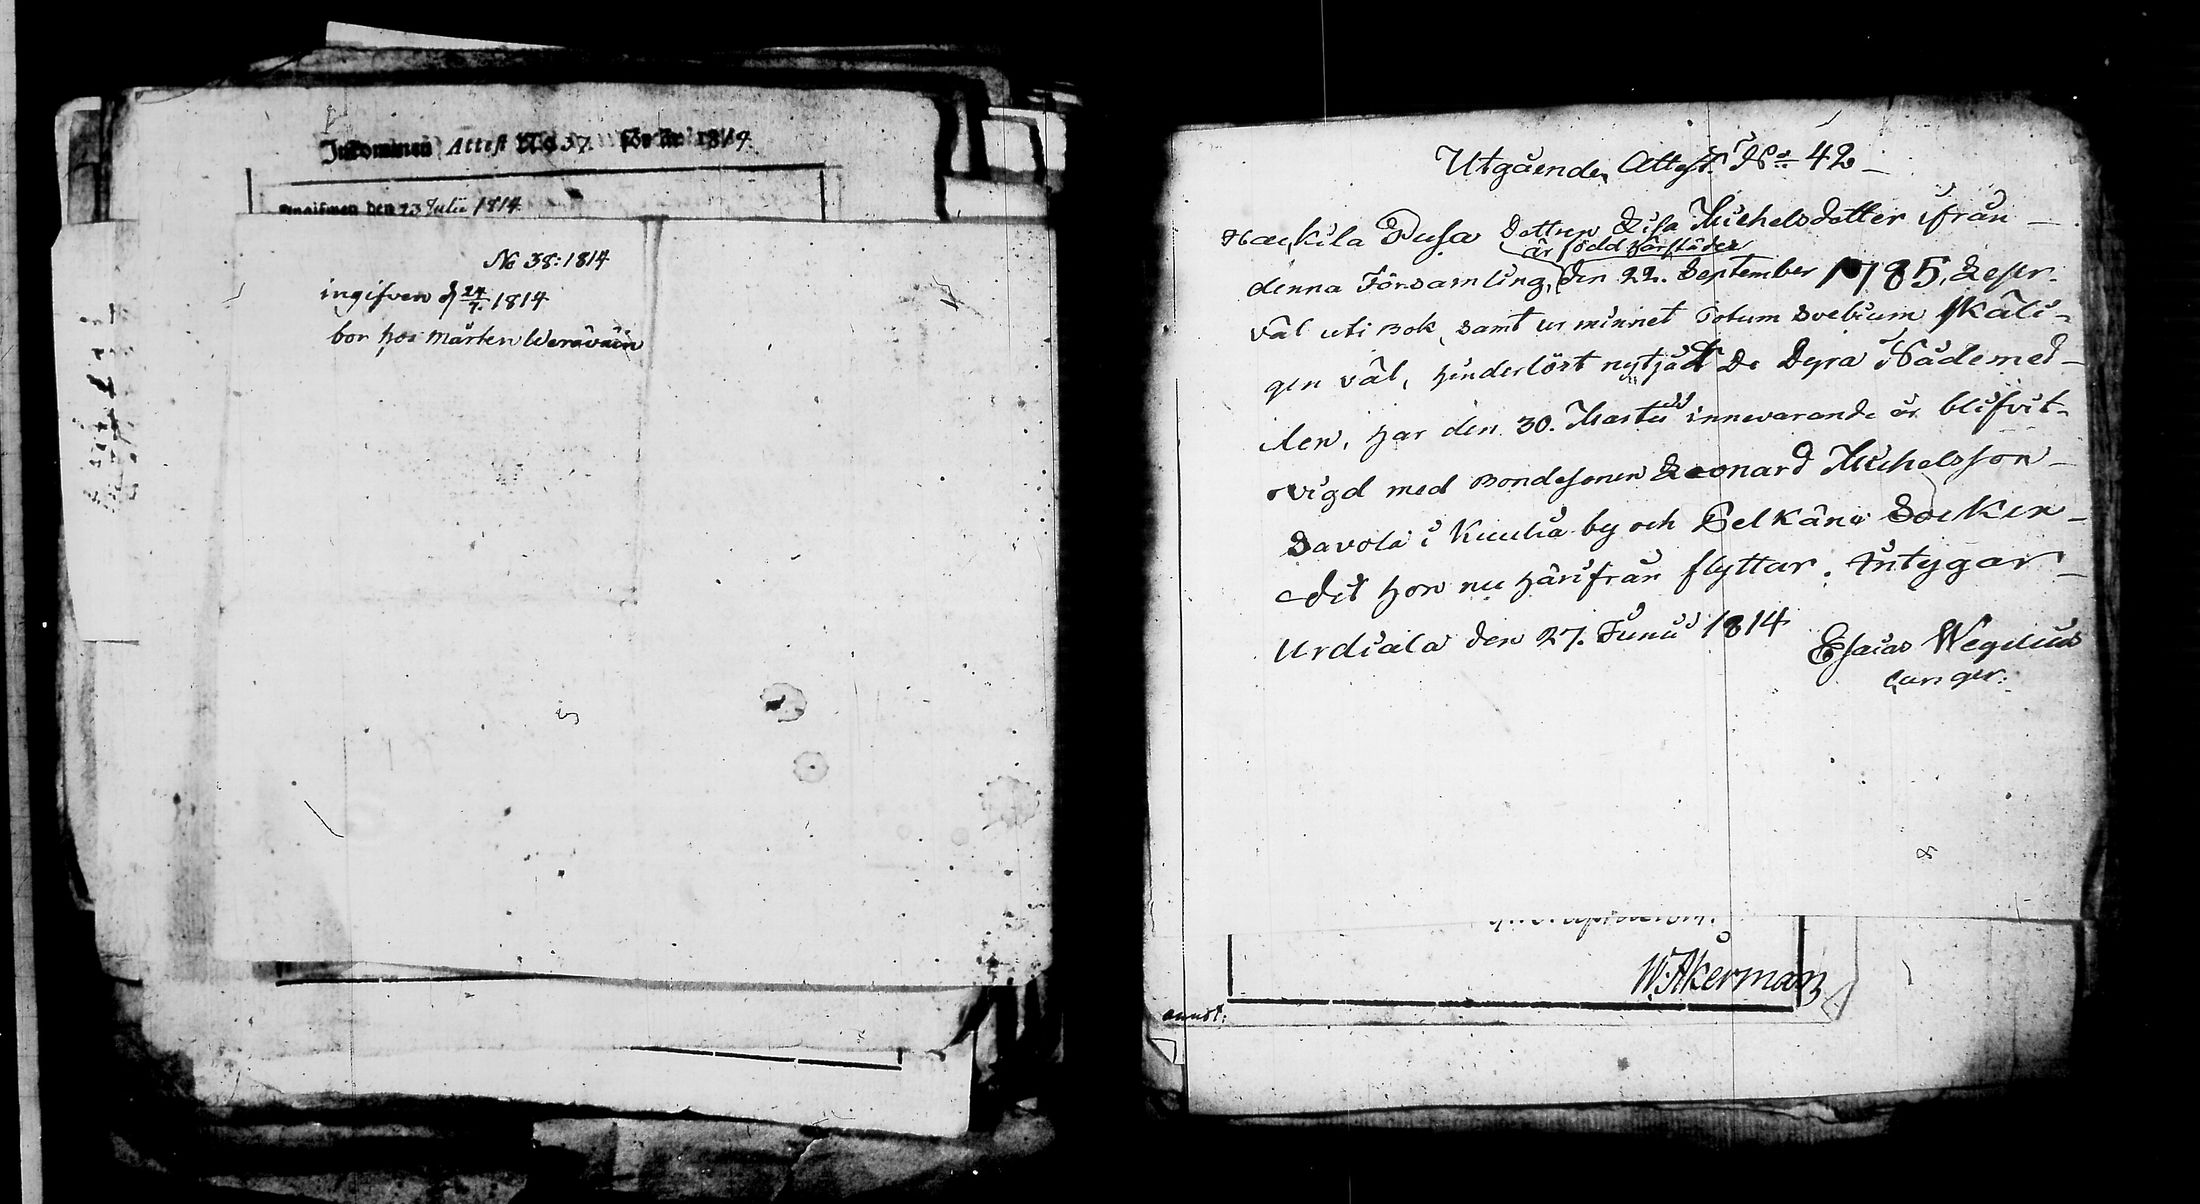 Inkommen Attest No 37 för år 1814.
Ingifwen den 23 Julii 1814
No 38: 1814
ingifven d 24/7. 1814
bor hos Mårten Weräväin
Utgåendes Attest. No 42
Haukila Pusa Dottren Lisa Michelsdotter ifrån
är född härstädes
denna Församling, den 22. September 1785, Läser
väl uti Bok, samt ur minnet Totum Svebium skäli-
gen väl, hinderlöst nytjadt De Dyra Nådemed-
len, har den 30. Martii innevarande år blifvit
vigd med Bondesonen Leonard Michelsson
Savola i Kuulia by och Pelkäne Socken
dit hon nu härifrån flyttar. Intygar
Urdiala den 27. Junii 1814
Esaias Wegelius
W. Åkerman